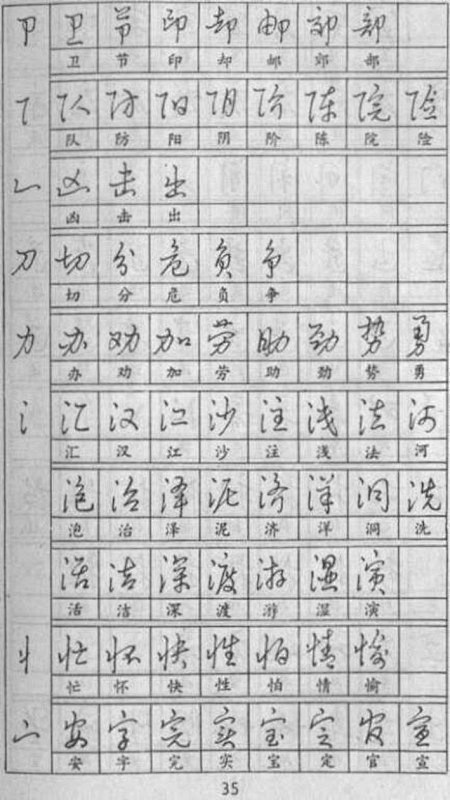 卩 卫 节 印 却 邮 郊 部
卫 节 印 却 邮 郊 部
阝 队 防 阳 阴 阶 陈 院 险
队 防 阳 阴 阶 陈 院 险
凵 凶 击 出
凶 击 出
刀 切 分 危 负 争
切 分 危 负 争
力 办 劝 加 劳 助 劲 势 勇
办 劝 加 劳 助 劲 势 勇
氵 汇 汉 江 沙 注 浅 法 河
汇 汉 江 沙 注 浅 法 河
泡 治 泽 泥 济 洋 洞 洗
泡 治 泽 泥 济 洋 洞 洗
活 洁 深 渡 游 湿 演
活 洁 深 渡 游 湿 演
忄 忙 怀 快 性 怕 情 愉
忙 怀 快 性 怕 情 愉
宀 安 字 完 实 宝 定 官 宣
安 字 完 实 宝 定 官 宣
35